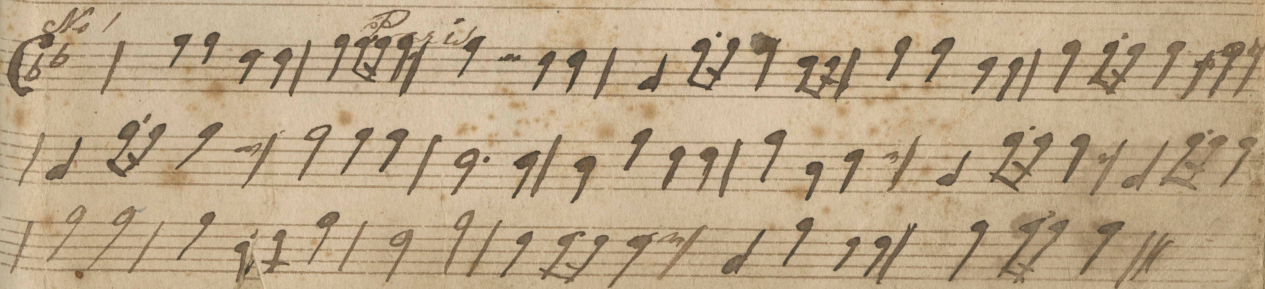 No 1 Paris